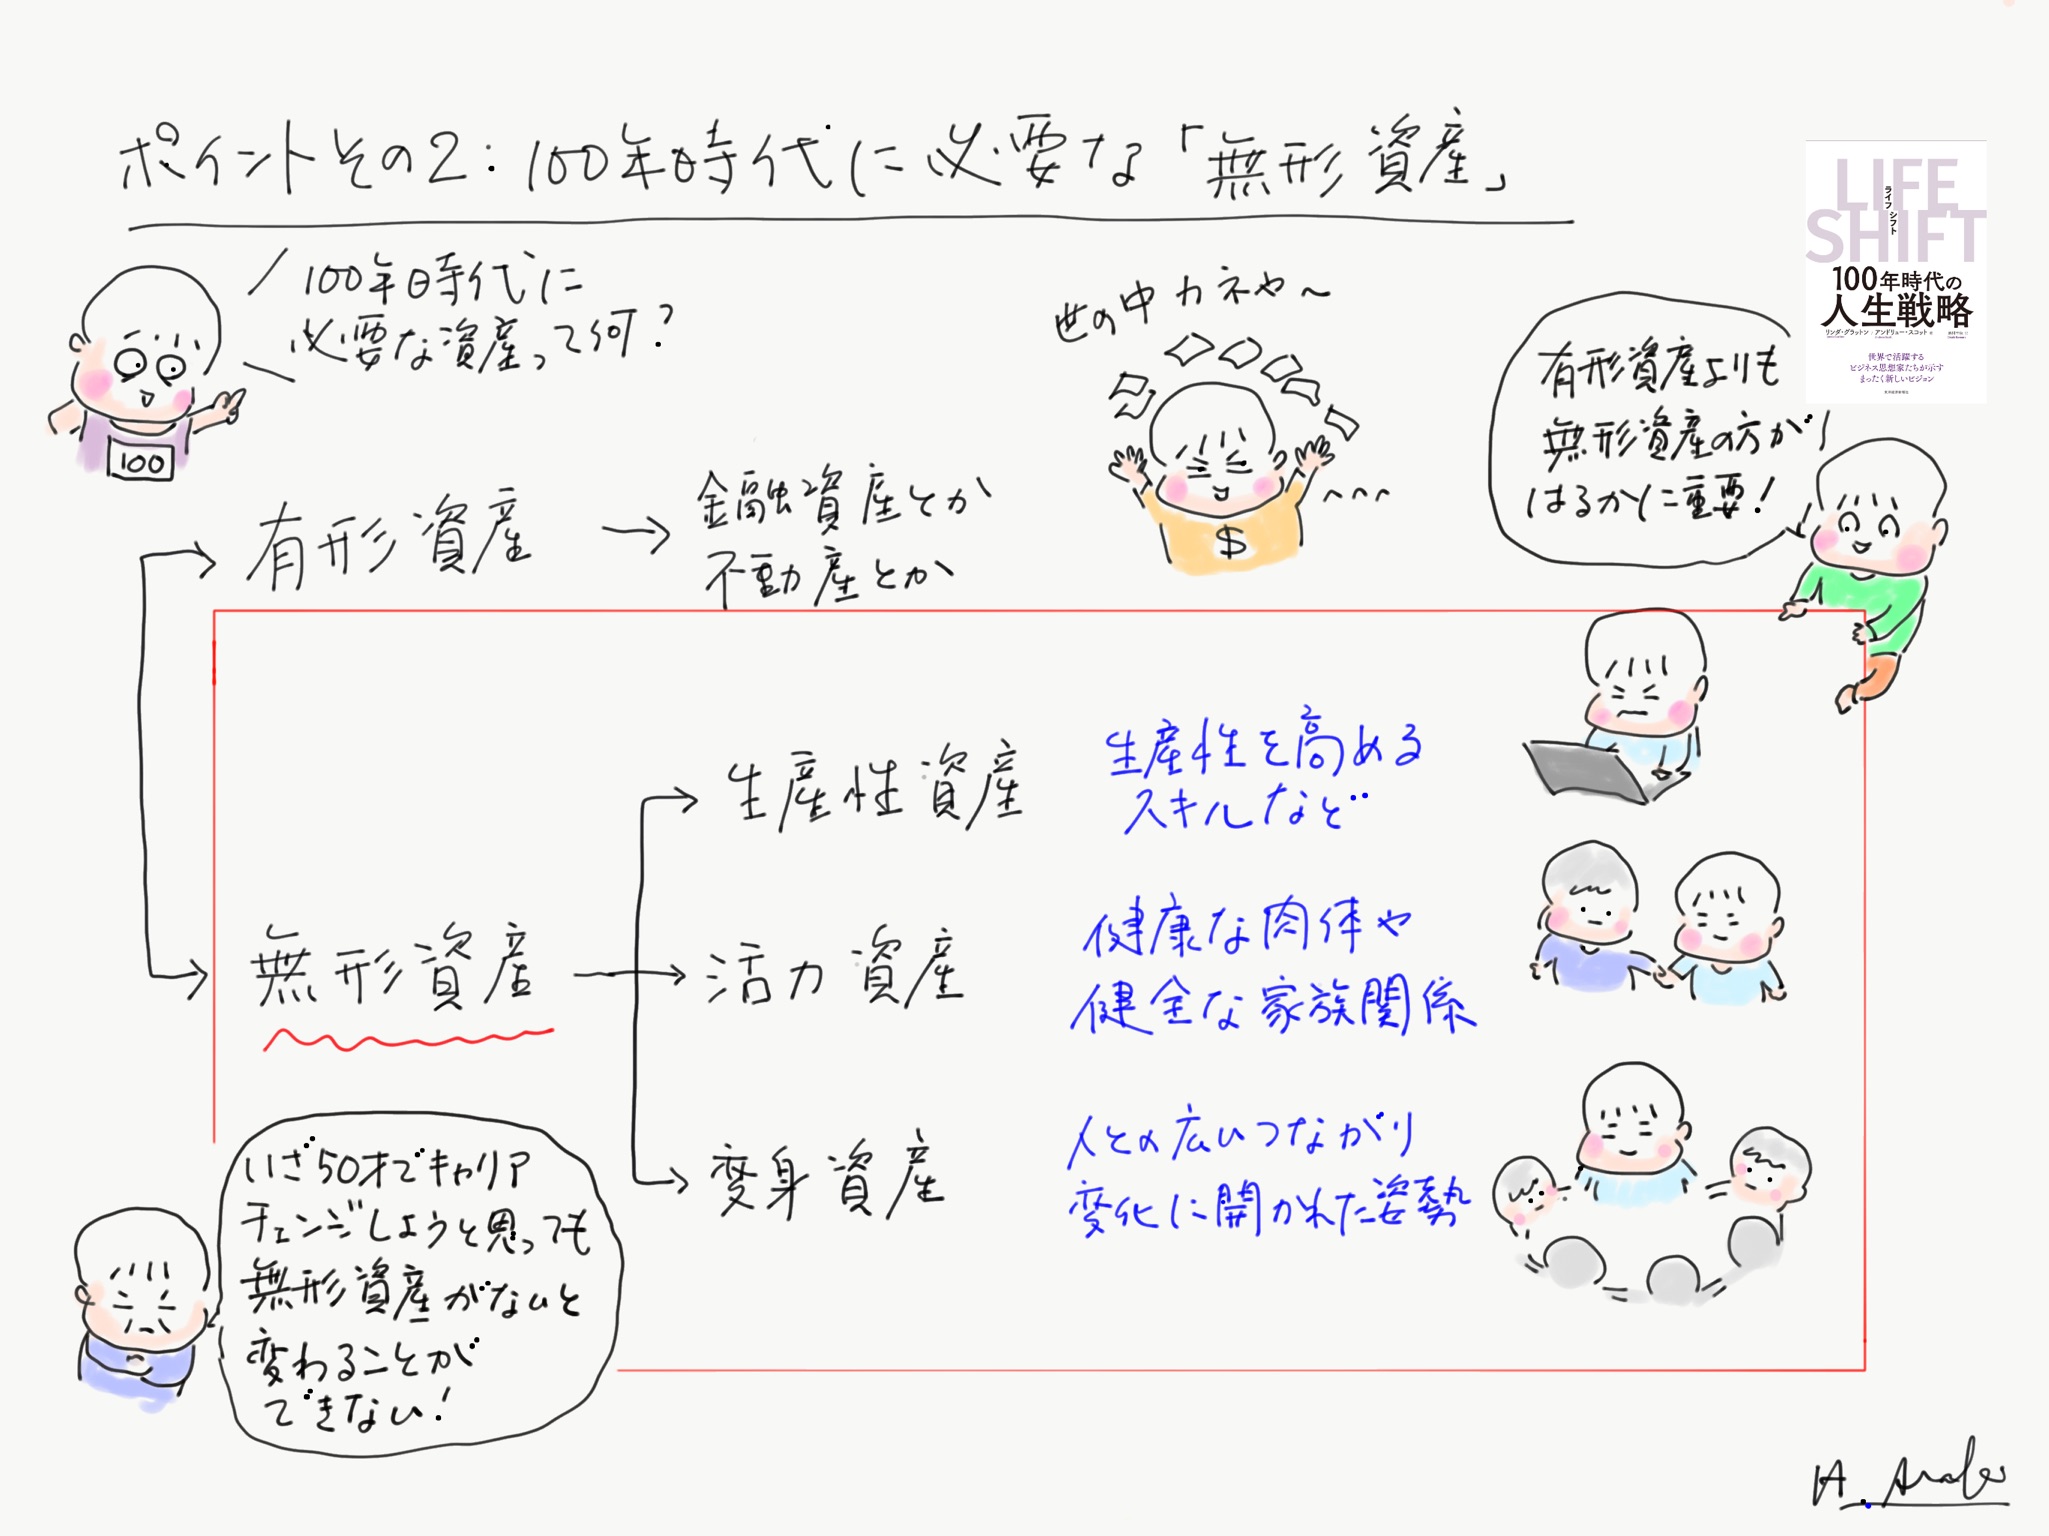 ポイントその2:100年時代に必要な「無形資産」
LIFE
SHIFT
ライフ シフト
100年時代の
人生戦略
リンダ・グラットン アンドリュー・スコット
世界で活躍する
ビジネス思想家たちが示す
まったく新しいビジョン
100年時代に
必要な資産って何?
100
世の中カネや〜
$
有形資産よりも
無形資産の方が
はるかに重要!
有形資産
金融資産とか
不動産とか
無形資産
生産性資産
生産性を高める
スキルなど
活力資産
健康な肉体や
健全な家族関係
変身資産
人との広いつながり
変化に開かれた姿勢
いざ50才でキャリア
チェンジしようと思っても
無形資産がないと
変わることが
できない!